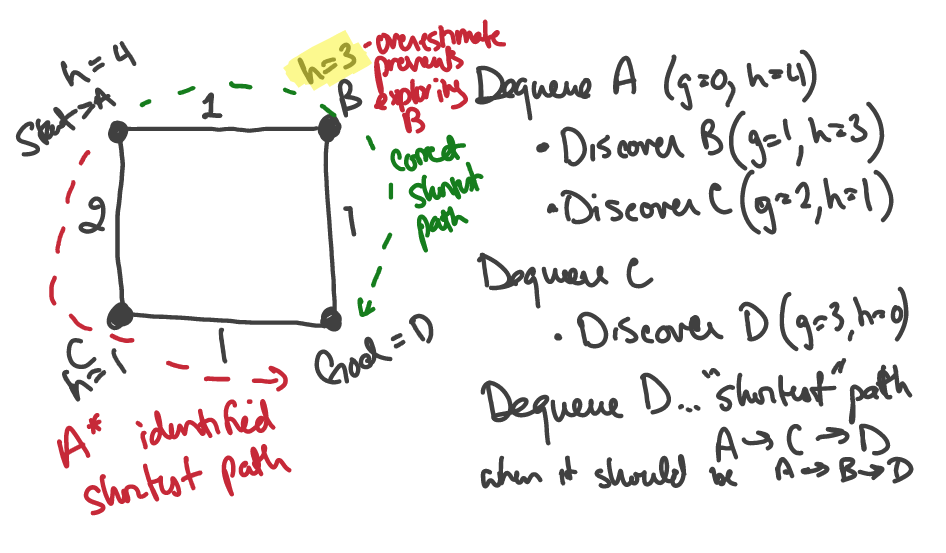 h=4
Start→A
1
h=3
- overestimate
prevents
exploring
B
B
correct
shortest
path
2
1
C
h=1
1
Goal=D
A* identified
shortest path
Dequeue A (g=0, h=4)
• Discover B (g=1, h=3)
• Discover C (g=2, h=1)
Dequeue C
• Discover D (g=3, h=0)
Dequeue D... "shortest" path
A → C → D
when it should be A → B → D